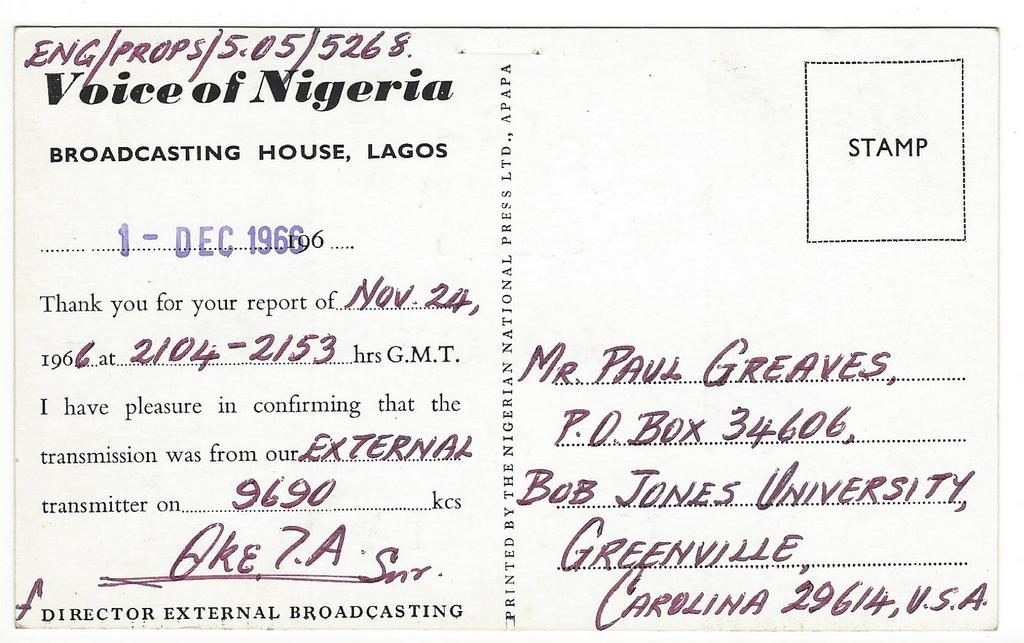 ENG/PROPS/5.05/5268.
Voice of Nigeria
BROADCASTING HOUSE, LAGOS
1 - DEC 1966 196
Thank you for your report of Nov. 24,
1966 at 2104-2153 hrs G.M.T.
I have pleasure in confirming that the
transmission was from our EXTERNAL
transmitter on 9690 kcs
Oke, T.A. Snr.
f DIRECTOR EXTERNAL BROADCASTING
PRINTED BY THE NIGERIAN NATIONAL PRESS LTD., APAPA
STAMP
MR. PAUL GREAVES,
P.O. BOX 34606,
BOB JONES UNIVERSITY,
GREENVILLE,
CAROLINA 29614, U.S.A.